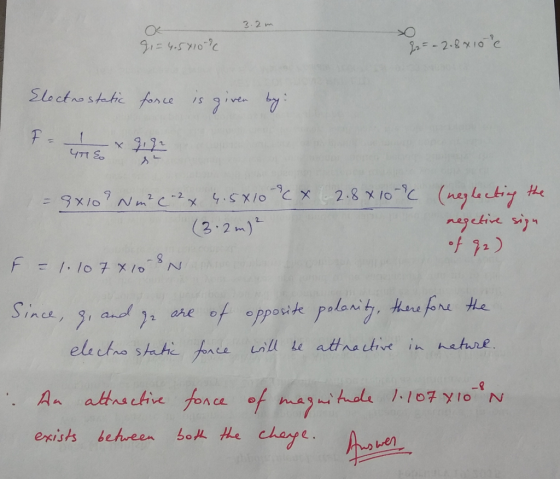 3.2 m
q₁ = 4.5×10⁻⁹C q₂ = - 2.8×10⁻⁹C
Electrostatic force is given by:
F = 1/4πε₀ × q₁q₂/r²
= 9×10⁹ Nm²C⁻² × 4.5×10⁻⁹C × 2.8×10⁻⁹C / (3.2m)² (neglecting the
negetive sign
of q₂)
F = 1.107 ×10⁻⁸ N
Since, q₁ and q₂ are of opposite polarity, therefore the
electrostatic force will be attractive in nature.
∴ An attractive force of magnitude 1.107×10⁻⁸ N
exists between both the charge. Answer